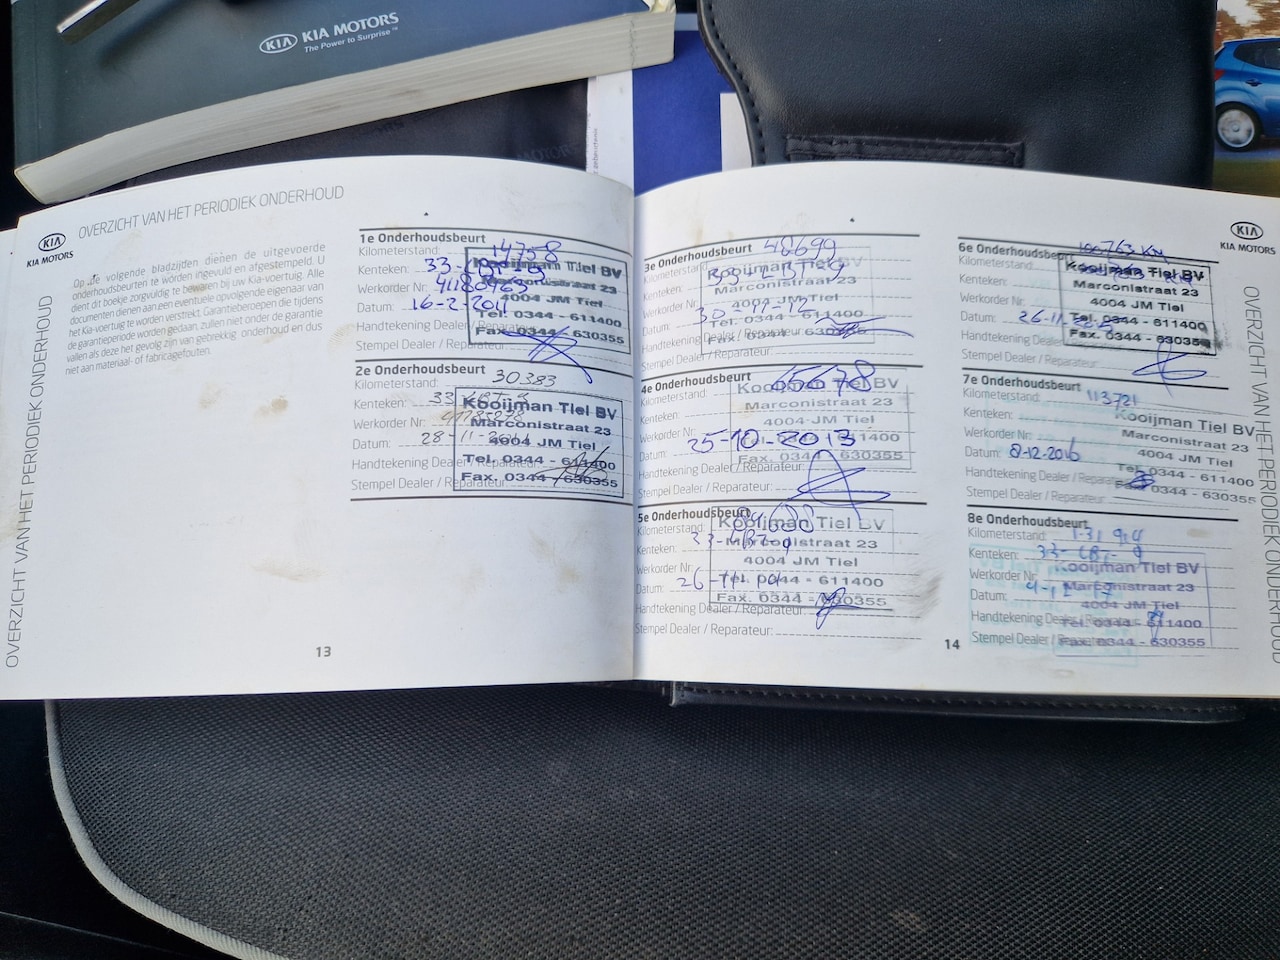 KIA KIA MOTORS
The Power to Surprise™
KIA
KIA MOTORS
OVERZICHT VAN HET PERIODIEK ONDERHOUD
Op de volgende bladzijden dienen de uitgevoerde
onderhoudsbeurten te worden ingevuld en afgestempeld. U
dient dit boekje zorgvuldig te bewaren bij uw Kia-voertuig. Alle
documenten dienen aan een eventuele opvolgende eigenaar van
het Kia-voertuig te worden verstrekt. Garantieberoepen die tijdens
de garantieperiode worden gedaan, zullen niet onder de garantie
vallen als deze het gevolg zijn van gebrekkig onderhoud en dus
niet aan materiaal- of fabricagefouten.
OVERZICHT VAN HET PERIODIEK ONDERHOUD
1e Onderhoudsbeurt
Kilometerstand: 14758
Kenteken: 33-
Werkorder Nr: 41180463
Datum: 16-2-2011
Handtekening Dealer / Reparateur:
Stempel Dealer / Reparateur:
Kooijman Tiel BV
Marconistraat 23
4004 JM Tiel
Tel. 0344 - 611400
Fax. 0344 - 630355
2e Onderhoudsbeurt
Kilometerstand: 30383
Kenteken: 33
Werkorder Nr:
Datum: 28-11-2011
Handtekening Dealer / Reparateur:
Stempel Dealer / Reparateur:
Kooijman Tiel BV
Marconistraat 23
4004 JM Tiel
Tel. 0344 - 611400
Fax. 0344 - 630355
13
3e Onderhoudsbeurt
Kilometerstand: 48699
Kenteken:
Werkorder Nr:
Datum: 30-11-12
Handtekening Dealer / Reparateur:
Stempel Dealer / Reparateur:
Kooijman Tiel BV
Marconistraat 23
4004 JM Tiel
Tel. 0344 - 611400
Fax. 0344 - 630355
4e Onderhoudsbeurt
Kilometerstand:
Kenteken:
Werkorder Nr:
Datum: 25-10-2013
Handtekening Dealer / Reparateur:
Stempel Dealer / Reparateur:
Kooijman Tiel BV
Marconistraat 23
4004 JM Tiel
Tel. 0344 - 611400
Fax. 0344 - 630355
5e Onderhoudsbeurt
Kilometerstand:
Kenteken: 33-
Werkorder Nr:
Datum: 26-11-
Handtekening Dealer / Reparateur:
Stempel Dealer / Reparateur:
Kooijman Tiel BV
Marconistraat 23
4004 JM Tiel
Tel. 0344 - 611400
Fax. 0344 - 630355
6e Onderhoudsbeurt
Kilometerstand: 100763 KM
Kenteken:
Werkorder Nr:
Datum: 26-11-
Handtekening Dealer / Reparateur:
Stempel Dealer / Reparateur:
Kooijman Tiel BV
Marconistraat 23
4004 JM Tiel
Tel. 0344 - 611400
Fax. 0344 - 630355
7e Onderhoudsbeurt
Kilometerstand: 113721
Kenteken:
Werkorder Nr:
Datum: 8-12-2016
Handtekening Dealer / Reparateur:
Stempel Dealer / Reparateur:
Kooijman Tiel BV
Marconistraat 23
4004 JM Tiel
Tel. 0344 - 611400
Fax. 0344 - 630355
8e Onderhoudsbeurt
Kilometerstand:
Kenteken: 33-
Werkorder Nr:
Datum:
Handtekening Dealer / Reparateur:
Stempel Dealer / Reparateur:
Kooijman Tiel BV
Marconistraat 23
4004 JM Tiel
Tel. 0344 - 611400
Fax. 0344 - 630355
14
KIA
KIA MOTORS
OVERZICHT VAN HET PERIODIEK ONDERHOUD